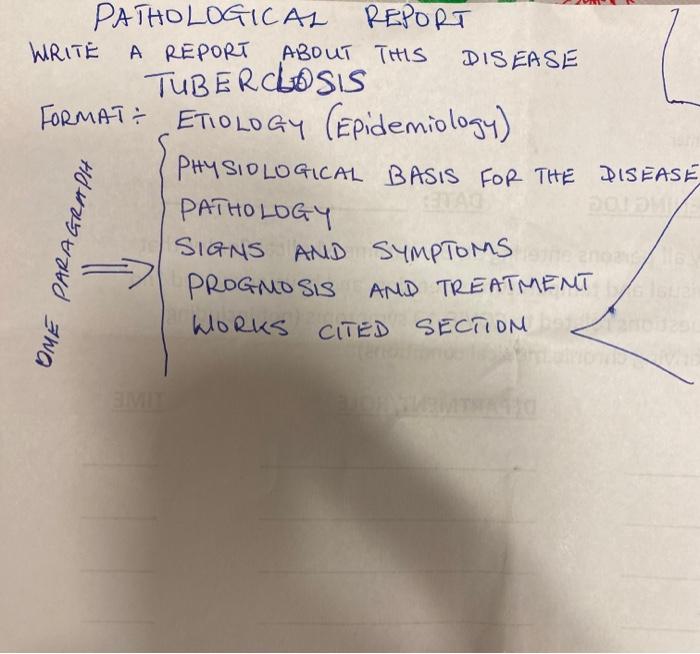 PATHOLOGICAL REPORT
WRITE A REPORT ABOUT THIS DISEASE
TUBERCLOSIS
FORMAT÷ ETIOLOGY (Epidemiology)
PHYSIOLOGICAL BASIS FOR THE DISEASE
PATHOLOGY
SIGNS AND SYMPTOMS
PROGNOSIS AND TREATMENT
WORKS CITED SECTION
ONE PARAGRAPH
DATE:
TIME
DEPARTMENT/ROLE